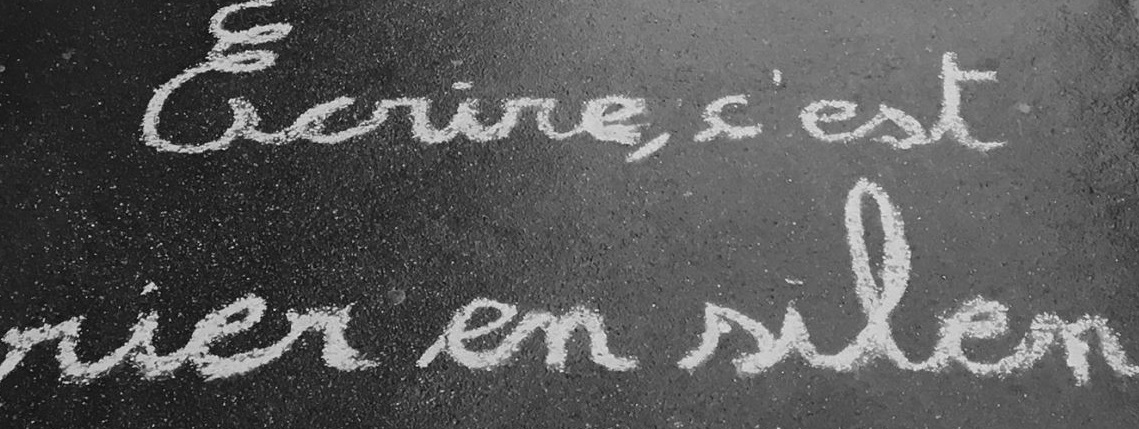 Ecrire, c'est
rier en silen